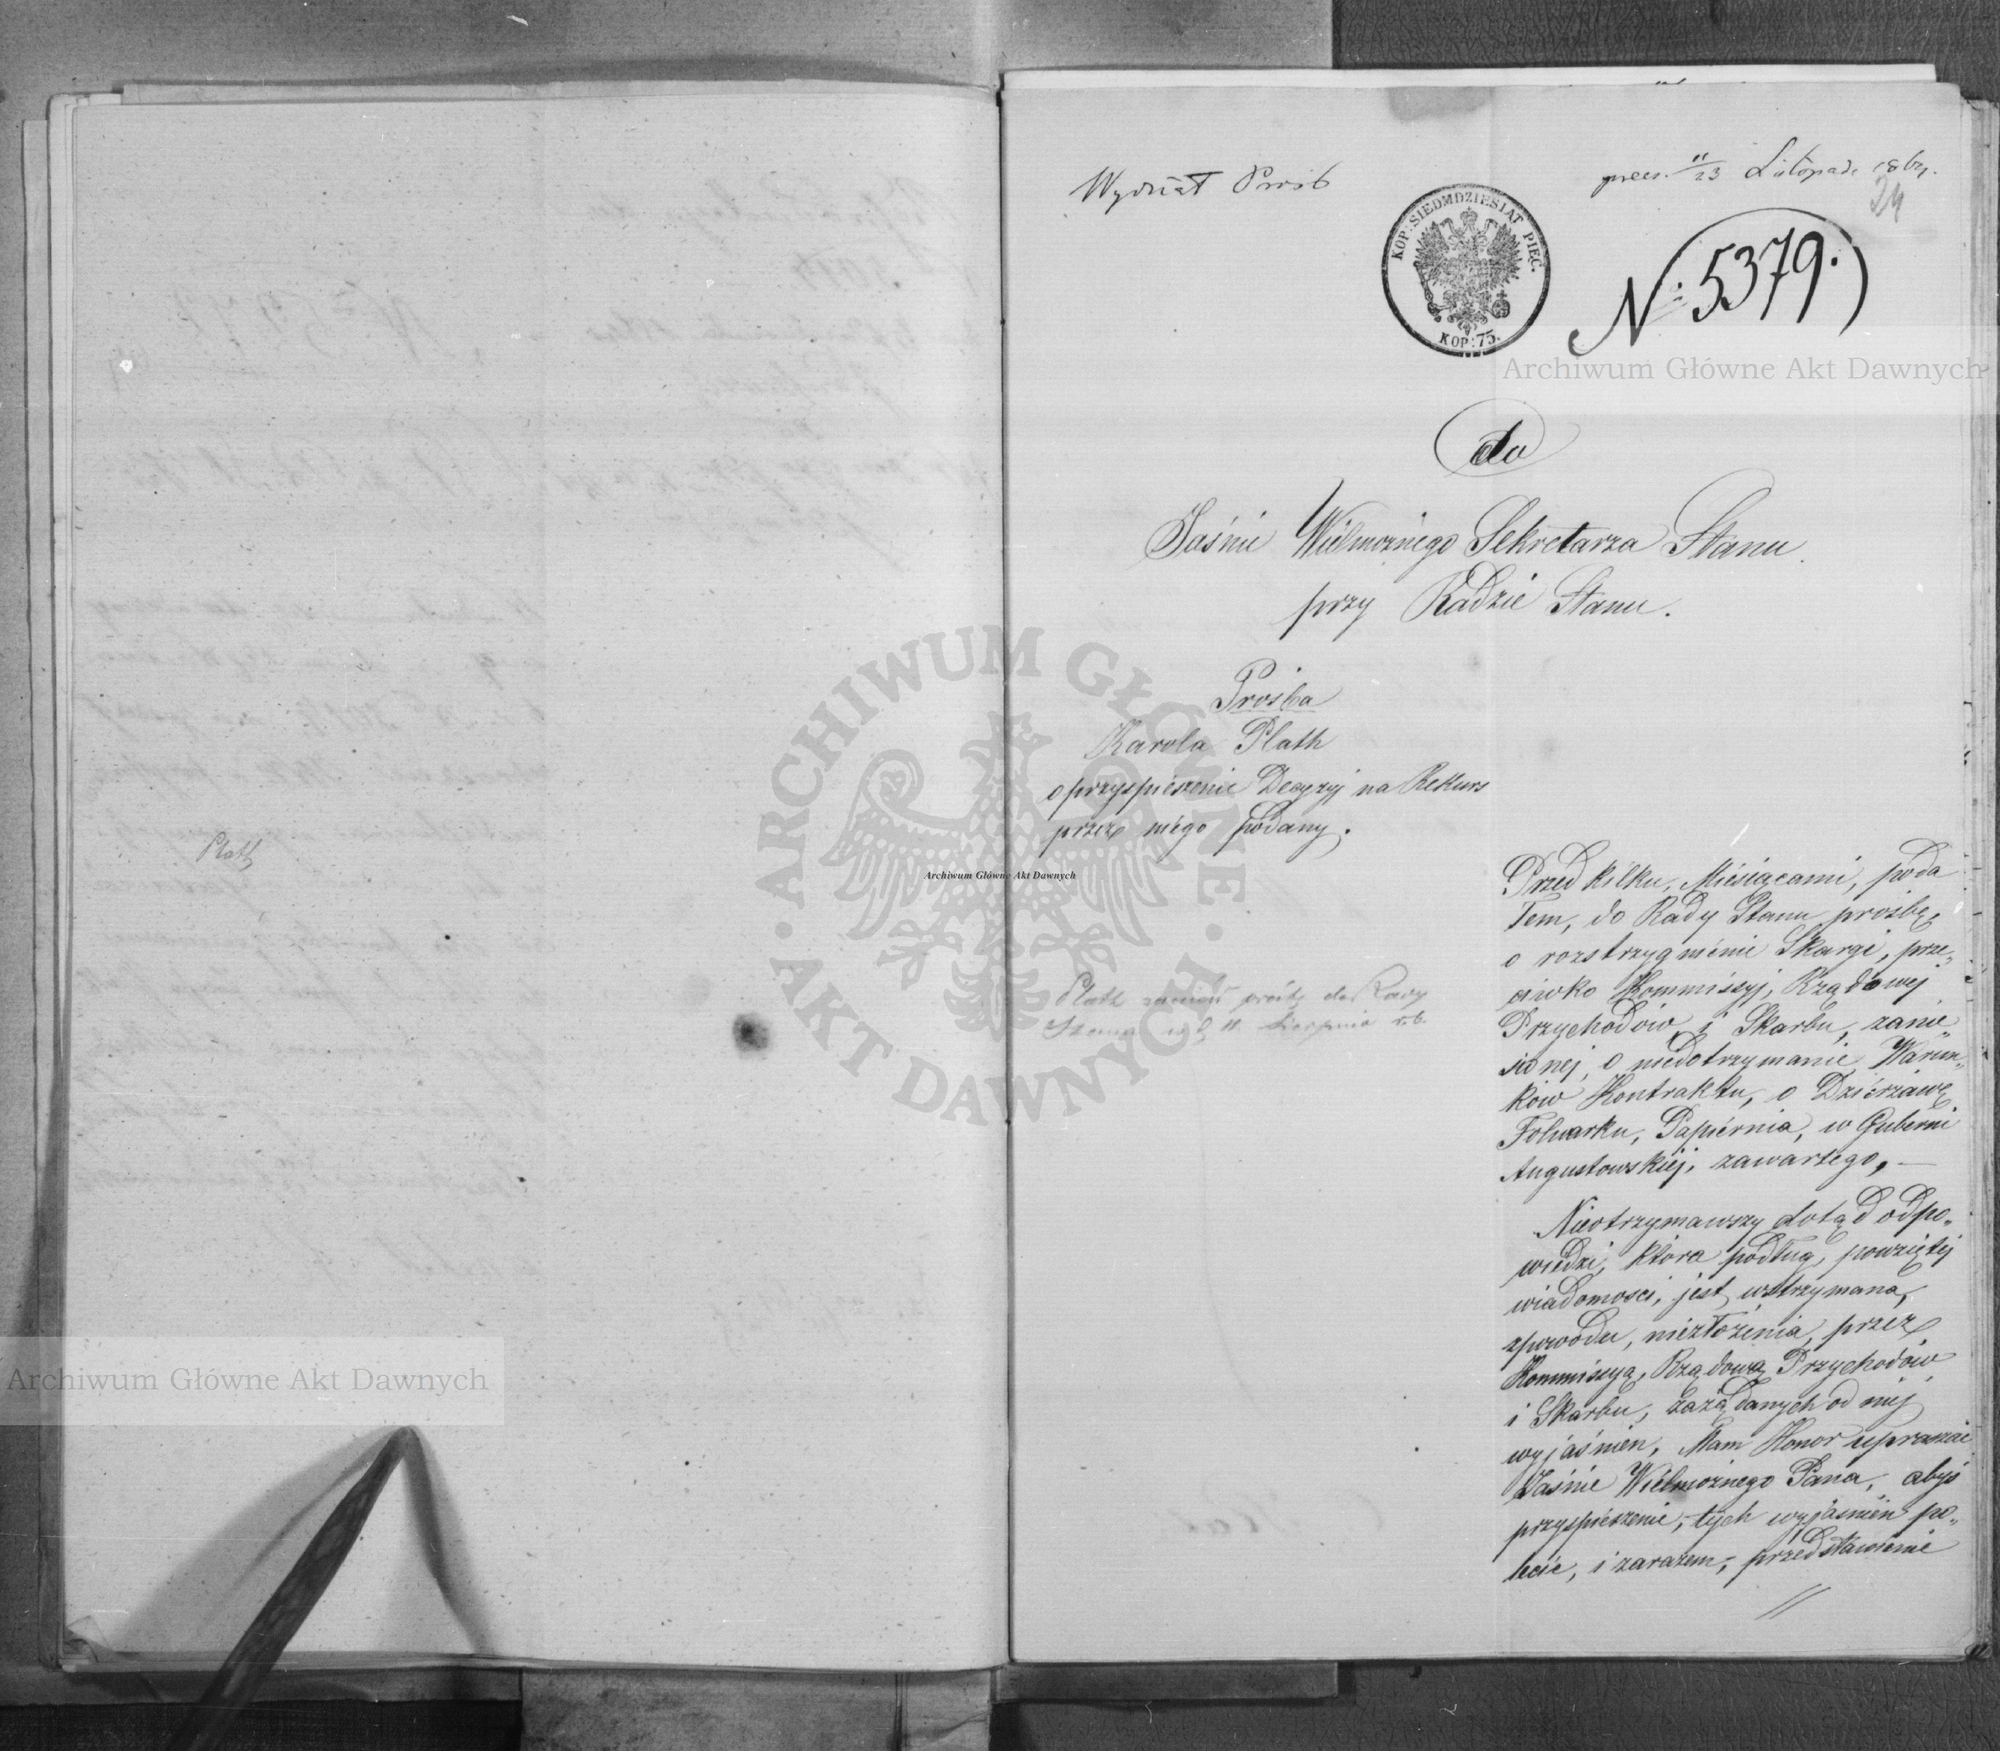 Plath
Wydział Próśb
prez. 11/23 Listopada 1864.
24
KOP: SIEDMDZIESIĄT PIĘĆ.
KOP: 75.
N: 5379.
do
Jaśnie Wielmożnego Sekretarza Stanu
przy Radzie Stanu.
Prośba
Karola Plath
o przyspieszenie Decyzyj na Rekurs
przez niego podany.
Plath zaniósł prośbę do Rady
Stanu w d. 11 Sierpnia r.b.
Przed kilku, Miesiącami, poda
łem, do Rady Stanu prośbę,
o rozstrzygnienie Skargi, prze„
ciwko Kommissyj, Rządowej
Przychodów i Skarbu, zanie„
sionej, o niedotrzymanie Warun„
ków Kontraktu, o Dzierżawę
Folwarku, Papiernia, w Guberni
Augustowskiej, zawartego, —
Nieotrzymawszy dotąd odpo„
wiedzi, która podług, powziętej
wiadomości, jest wstrzymana,
zpowodu, niezłożenia, przez
Kommissyą, Rządową Przychodów
i Skarbu, zażądanych od niej
wyjaśnień, Mam Honor upraszać
Jaśnie Wielmożnego Pana, abyś
przyspieszenie, tych wyjaśnień po„
lecić, i zarazem, przedstawienie
//
Archiwum Główne Akt Dawnych
Archiwum Główne Akt Dawnych
Archiwum Główne Akt Dawnych
ARCHIWUM GŁÓWNE · AKT DAWNYCH ·